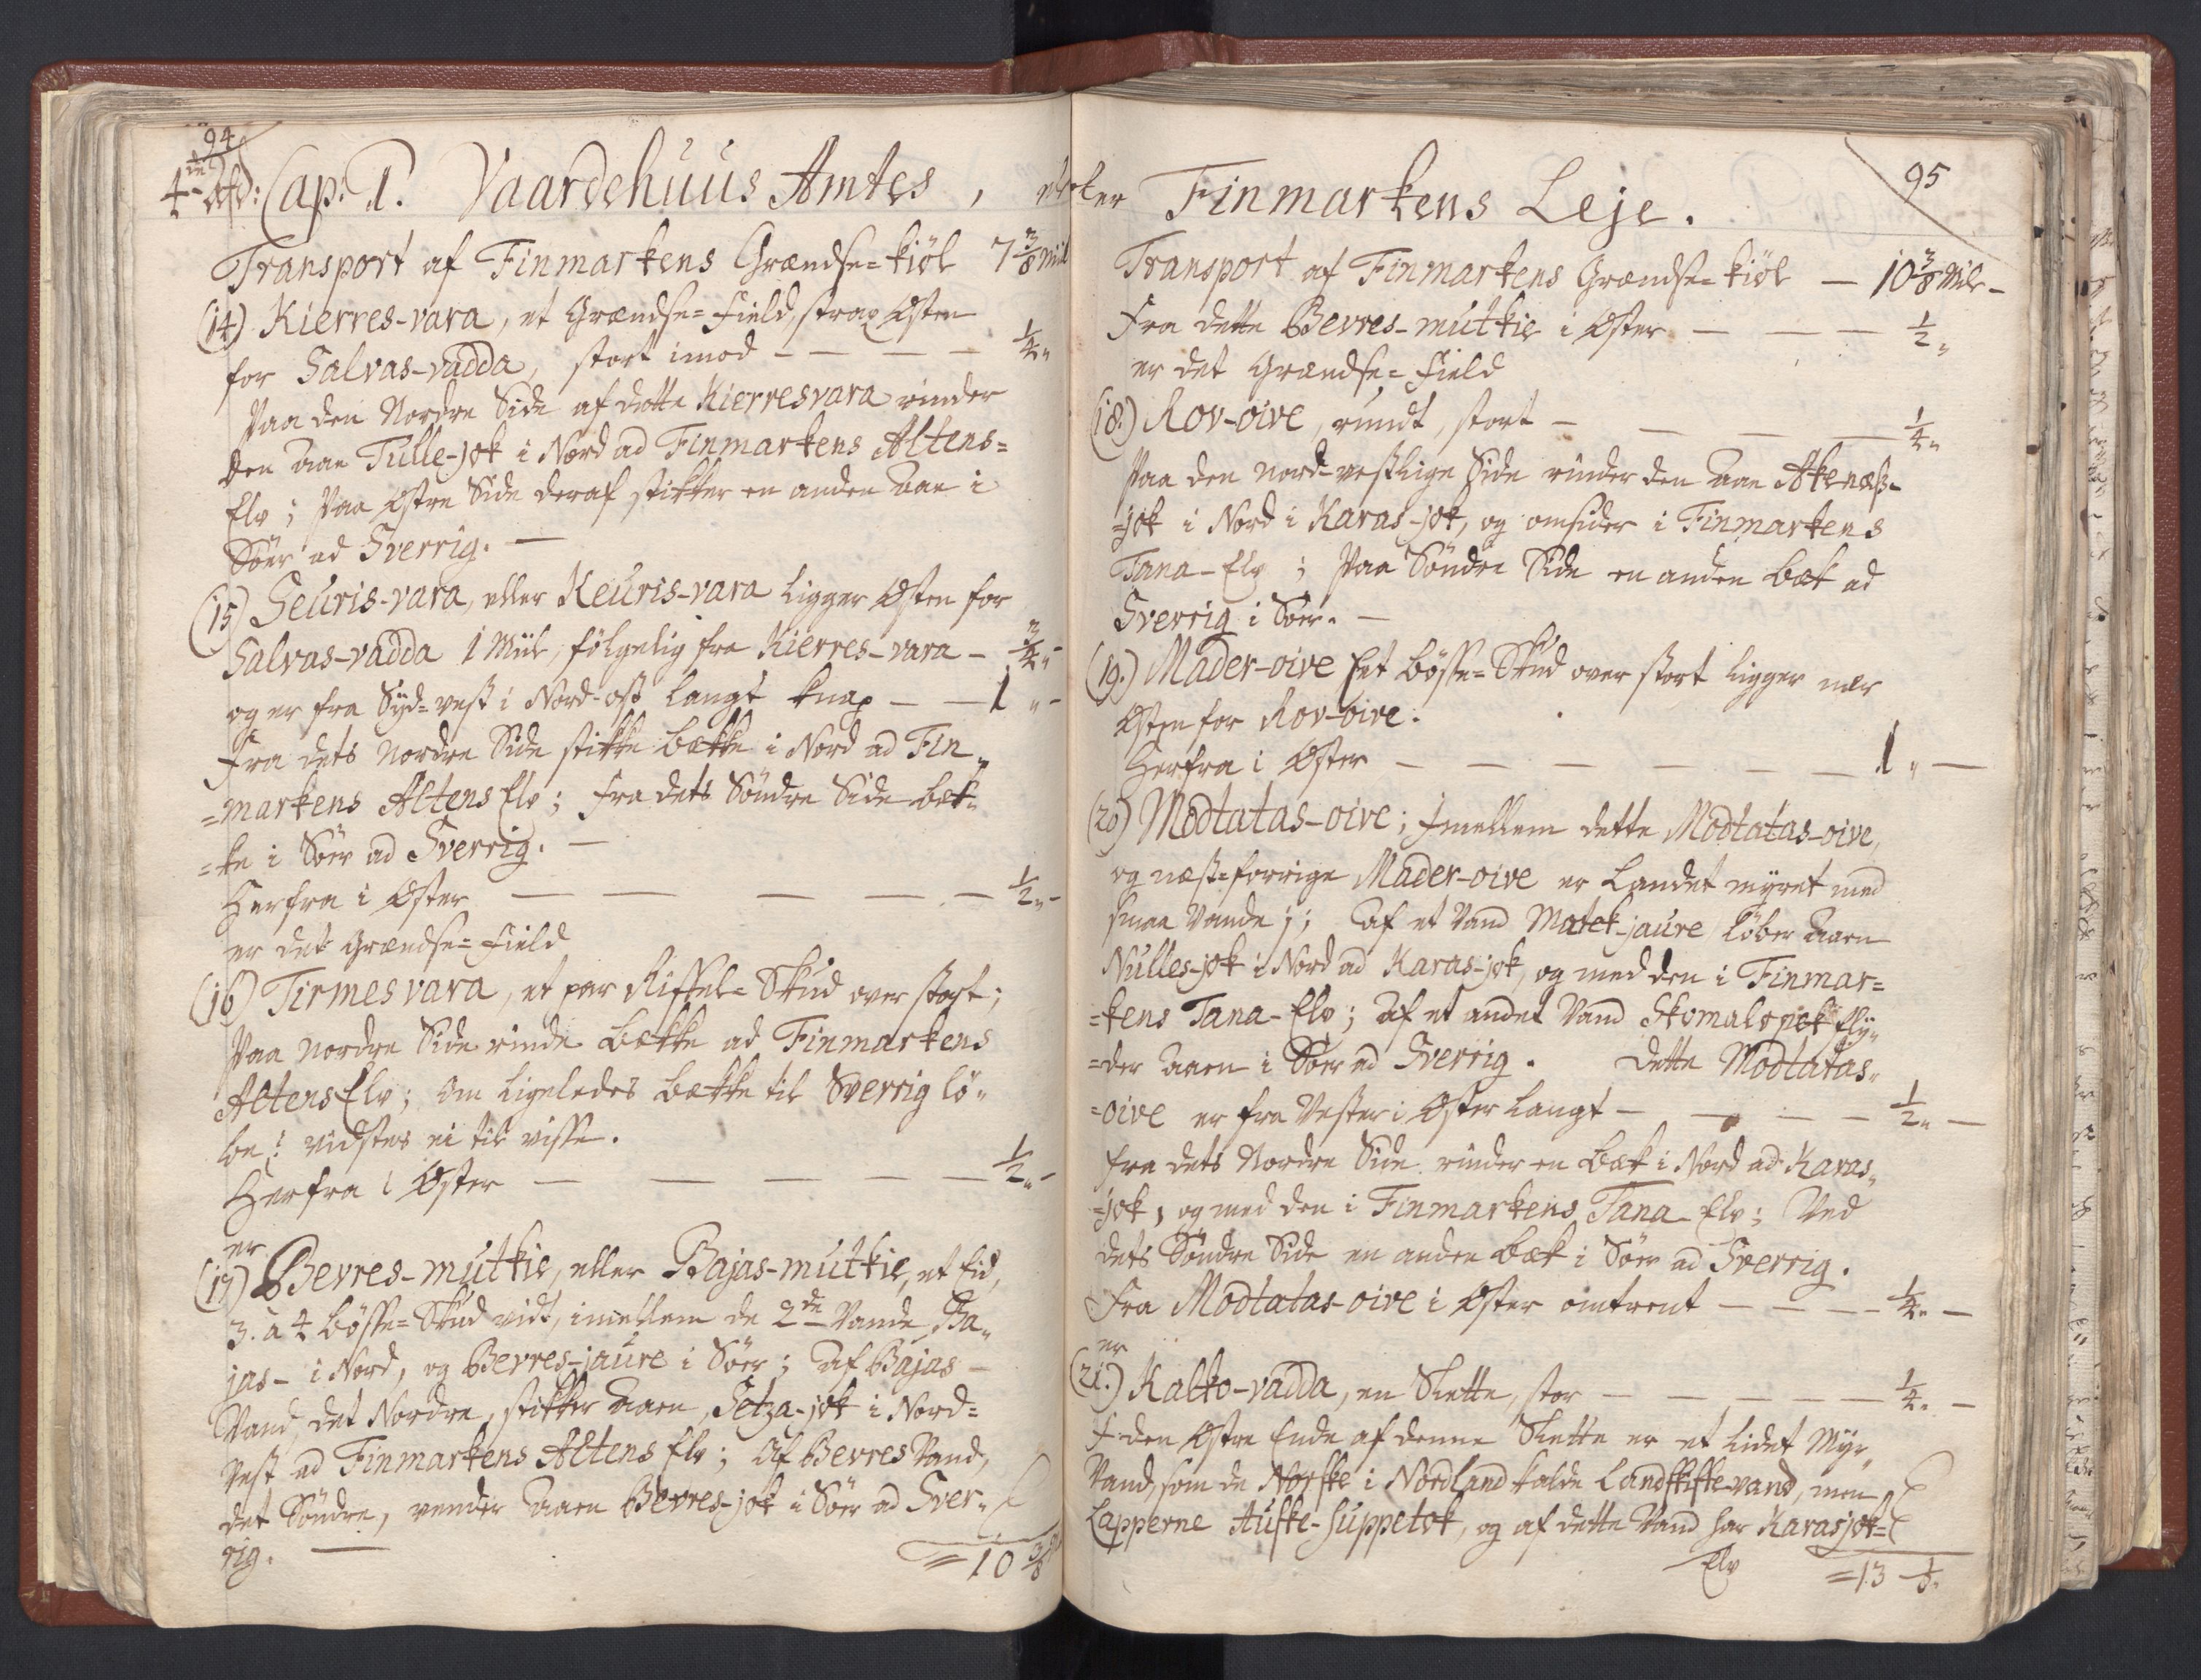 94
4de Afd: Cap: 1. Vaardehuus Amtes, eller
Transport af Finmarkens Grændse-kiøl 7 3/8 Miil
(14) Kierres-vara, et Grændse-Field, strax Østen
for Salvas-vadda, stort imod — — — — 1/4 "
Paa den Nordre Side af dette Kierresvara rinder
den Aae Tulle-jok i Nord ad Finmarkens Altens=
Elv; Paa Østre Side deraf stikker en anden Aae i
Söer ad Sverrig. —
(15) Seuris-vara, eller Keuris-vara ligger Østen for
Salvas-vadda 1 Miil, fölgelig fra Kierres-vara — 3/4 " —
og er fra Syd-vest i Nord-ost langt knap — — 1 " —
Fra dets Nordre Side stikke bække i Nord ad Fin„
=markens Altens Elv; fra dets Söndre Side bæk„
=ke i Söer ad Sverrig. —
Herfra i Øster — — — — — 1/2 " —
er det Grændse-Field
(16) Tirmesvara, et par Riffel-Skud over stort;
Paa Nordre Side rinde bække ad Finmarkens
Altens Elv; Om ligeledes bække til Sverrig lö„
be? vidstes ei til visse.
Herfra i Øster — — — — — 1/2 " —
er
(17) Bevres-mutkie, eller Bajas-mutkie, et Eid,
3. à 4 bösse-Skud vidt, imellem de 2de Vande Ba„
jas- i Nord, og Bevres-jaure i Söer; Af Bajas-
Vand, det Nordre, stikker Aaen, Setza-jok i Nord=
vest ad Finmarkens Altens Elv; Af Bevres Vand,
det Söndre, render Aaen Bevres-jok i Söer ad Sver„
rig. —
= 10 3/8
95
Finmarkens Leje.
Transport af Finmarkens Grændse-kiøl — 10 3/8 Mile —
Fra dette Bevres-mutkie i Øster — — — 1/2 "
er det Grændse-Field
(18.) Rov-oive, rundt, stort — — — — 1/4 "
Paa den nord-vestlige Side rinder den Aae Akenæss-
=jok i Nord i Karas-jok, og omsider i Finmarkens
Tana-Elv; Paa Söndre Side en anden bæk ad
Sverrig i Söer. —
(19.) Mader-oive Eet bösse-Skud over stort ligger nær
Østen for Rov-oive.
Herfra i Øster — — — — — — 1 " —
(20) Modtatas-oive; Imellem dette Modtatas-oive,
og næst-forrige Mader-oive er Landet myret med
smaa Vande j; Af et Vand Matek-jaure löber Aaen
Nulles-jok i Nord ad Karas-jok, og med den i Finmar=
=kens Tana-Elv; Af et andet Vand Skomalopok fly„
=der Aaen i Söer ad Sverrig. Dette Modtatas„
=oive er fra Vester i Øster langt — — — — 1/2 " —
fra dets Nordre Side rinder en bæk i Nord ad Karas„
=jok, og med den i Finmarkens Tana-Elv; Ved
dets Söndre Side en anden bæk i Söer ad Sverrig.
Fra Modtatas-oive i Øster omtrent — — — — 1/4 " —
er
(21.) Kalko-vadda, en Slette, stor — — — — — 1/4 " —
I den Østre Ende af denne Slette er et lidet Myr„
Vand, som de Norske i Nordland kalde Landskifte-vand, men
Lapperne Auske-suppetok, og af dette Vand har Karasjok=
Elv = 13 1/8 "